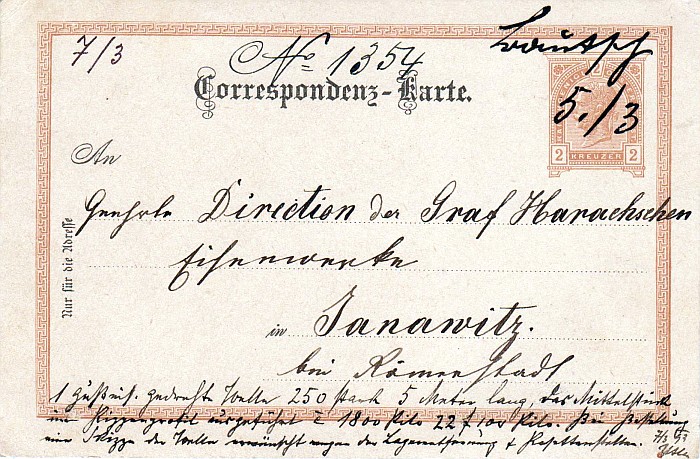 7/3
No 1354
Bautsch
5./3
Correspondenz-Karte.
2 KREUZER 2
An
Nur für die Adresse
Geehrte Direction der Graf Harrachschen
Eisenwerke
in Janowitz.
bei Römerstadt
1 gedrehte Welle 250 stark 5 Meter lang, das Mittelstück
im ausgeführt 1800 Kilo 22 f 100 Kilo. Bei Bestellung
eine Skizze der Welle erwünscht wegen der
7/3 93